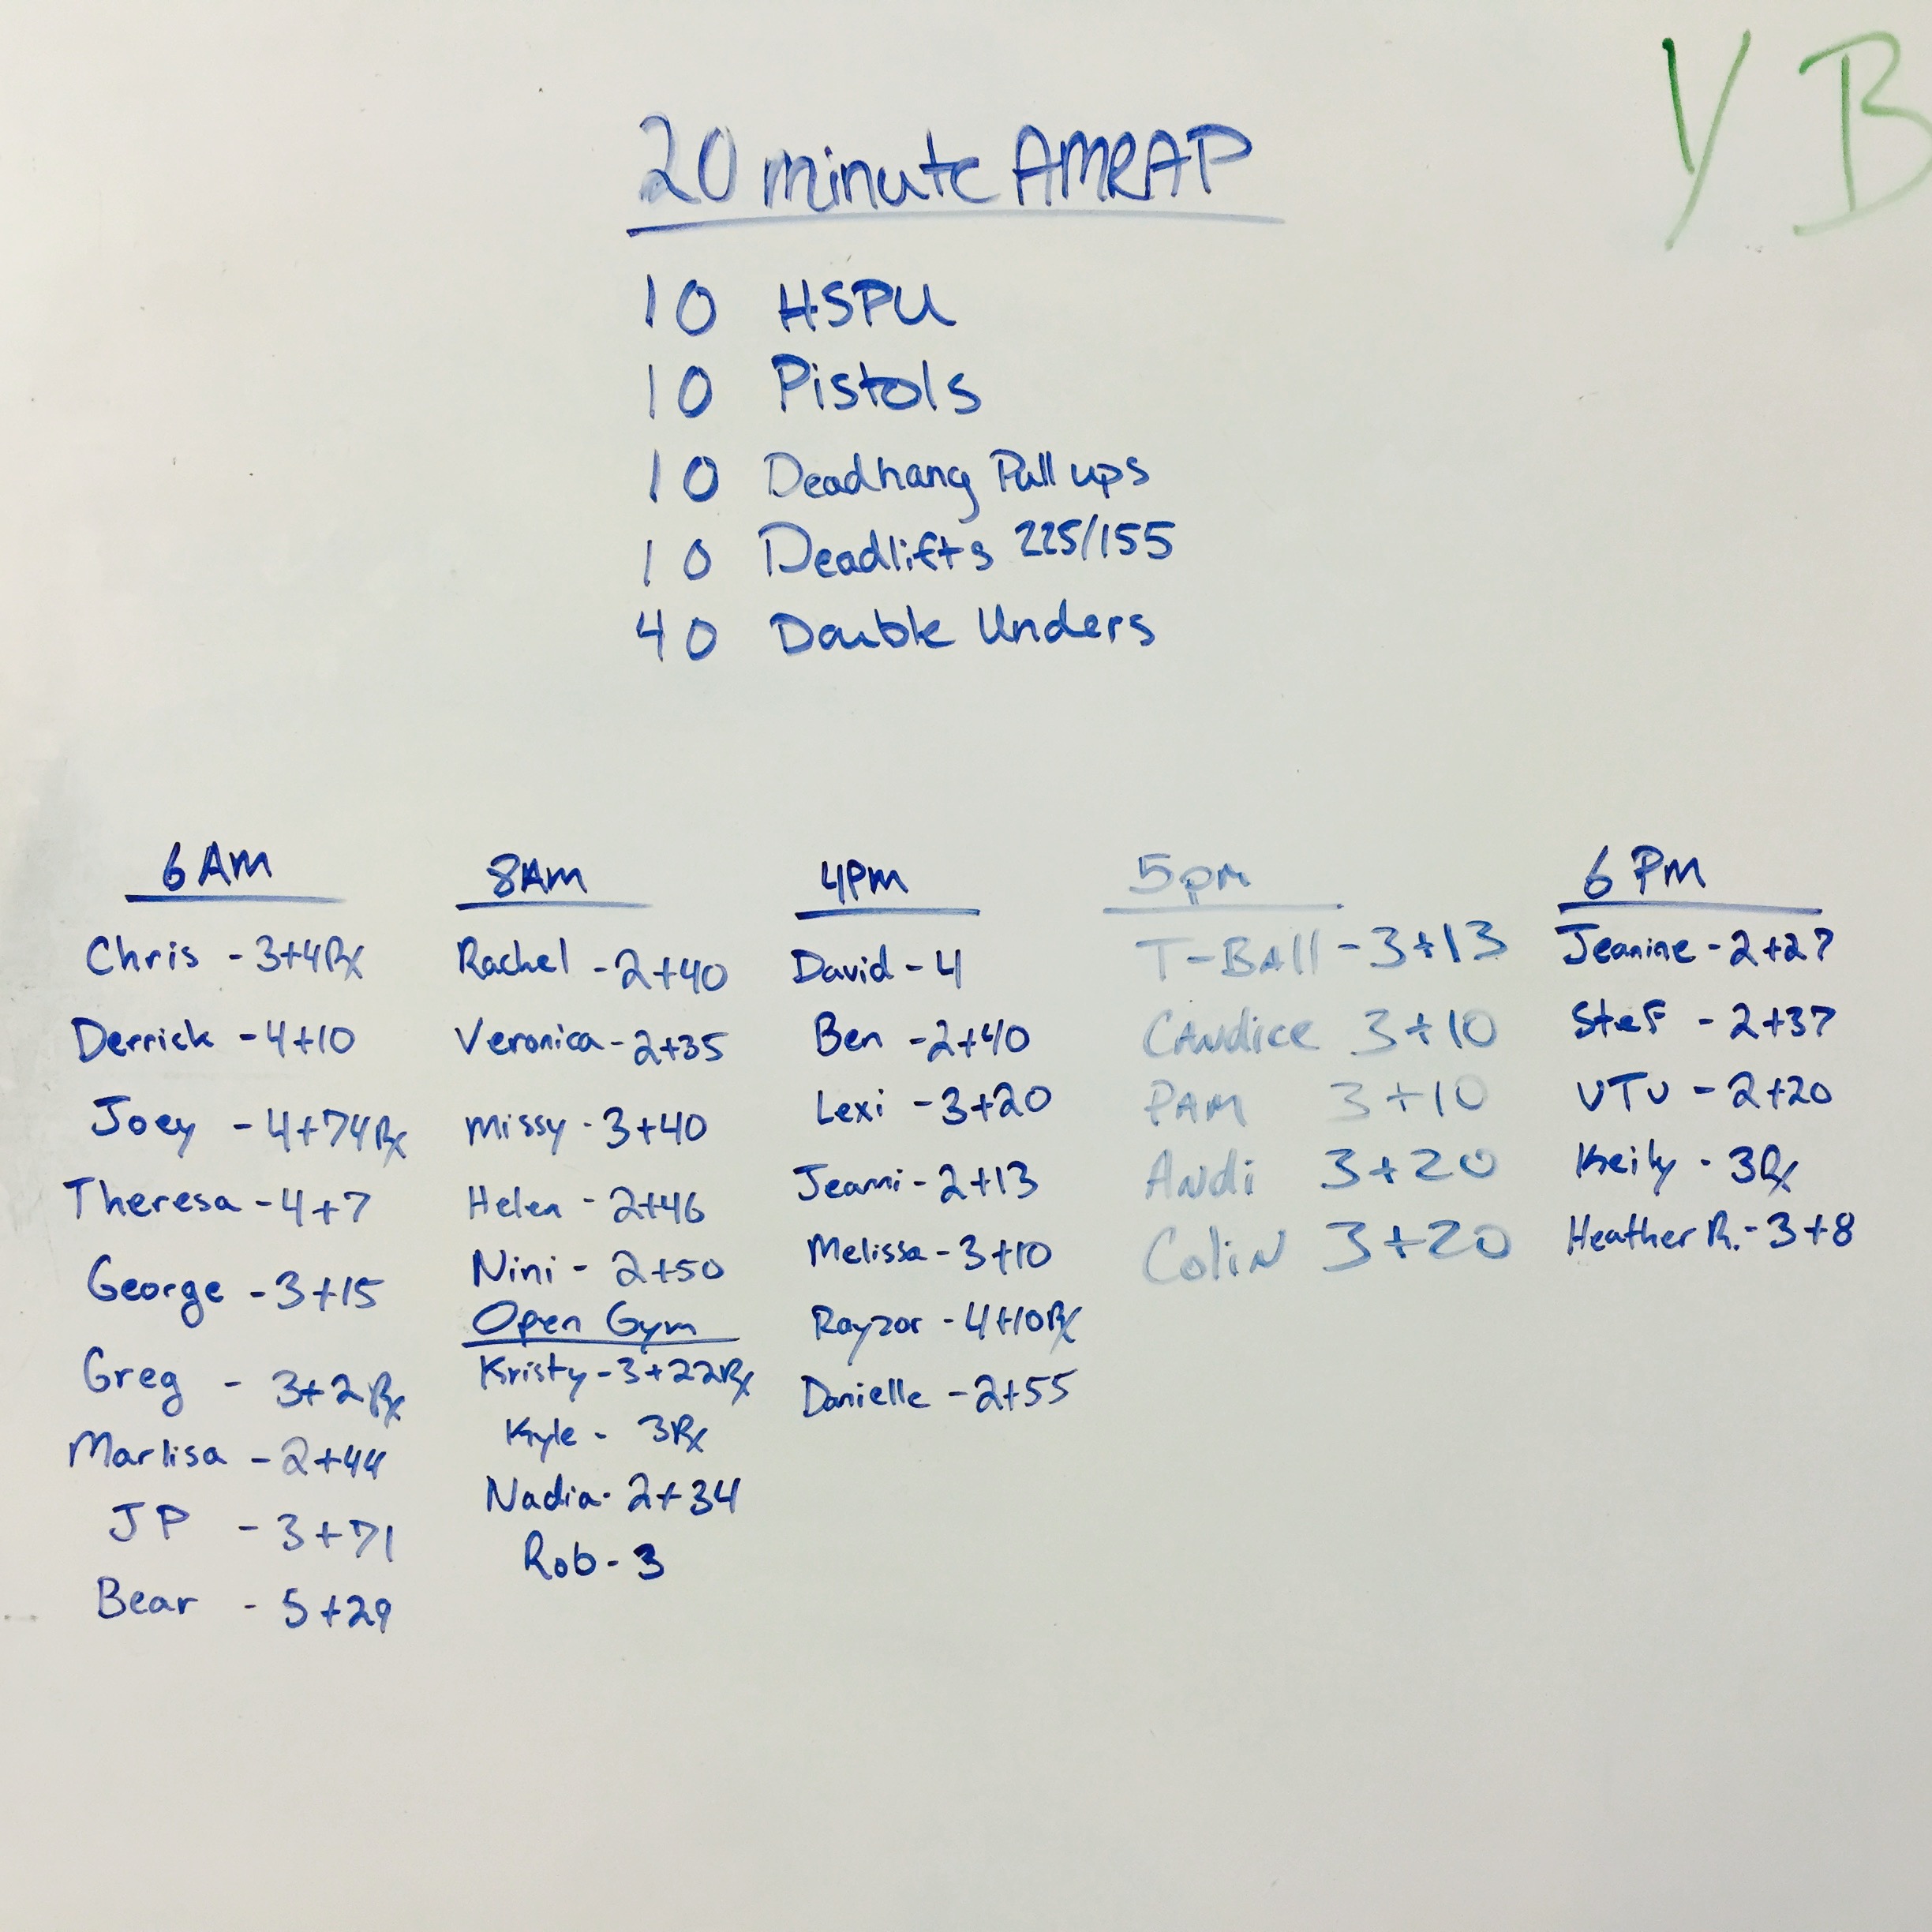 Y B
20 minute AMRAP
10 HSPU
10 Pistols
10 Deadhang Pull ups
10 Deadlifts 225/155
40 Double Unders
6 AM
Chris - 3+4Rx
Derrick - 4+10
Joey - 4+74Rx
Theresa - 4+7
George - 3+15
Greg - 3+2Rx
Marlisa - 2+44
JP - 3+71
Bear - 5+29
8AM
Rachel - 2+40
Veronica - 2+35
Missy - 3+40
Helen - 2+46
Nini - 2+50
Open Gym
Kristy - 3+22Rx
Kyle - 3Rx
Nadia - 2+34
Rob - 3
4PM
David - 4
Ben - 2+40
Lexi - 3+20
Jeanni - 2+13
Melissa - 3+10
Rayzor - 4+10Rx
Danielle - 2+55
5pm
T-BAll - 3+13
CANdice 3+10
PAM 3+10
ANdi 3+20
ColiN 3+20
6 PM
Jeanine - 2+27
Stef - 2+37
UTU - 2+20
Keily - 3Rx
Heather R. - 3+8